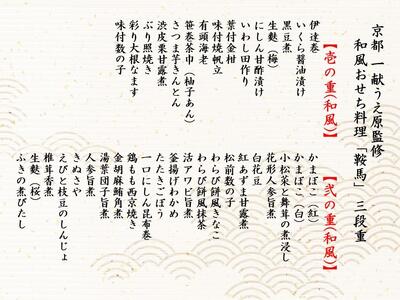 京都 一献うえ原監修
和風おせち料理「鞍馬」 三段重
【壱の重(和風)】
伊達巻
いくら醤油漬け
黒豆煮
生麩（梅）
にしん甘酢漬け
いわし田作り
葉付金柑
味付焼帆立
有頭海老
笹巻茶巾（柚子あん）
さつま芋きんとん
渋皮栗甘露煮
ぶり照焼き
彩り大根なます
味付数の子
【弐の重(和風)】
かまぼこ（紅）
かまぼこ（白）
小松菜と舞茸の煮浸し
花形人参旨煮
白花豆
紅あずま甘露煮
松前数の子
わらび餅風きなこ
わらび餅風抹茶
活アワビ旨煮
釜揚げわかめ
たたきごぼう
一口にしん昆布巻
鶏もも西京焼き
金胡麻鮪角煮
湯葉団子旨煮
人参旨煮
きぬさや
えびと枝豆のしんじょ
椎茸香煮
生麩（桜）
ふきの煮びたし